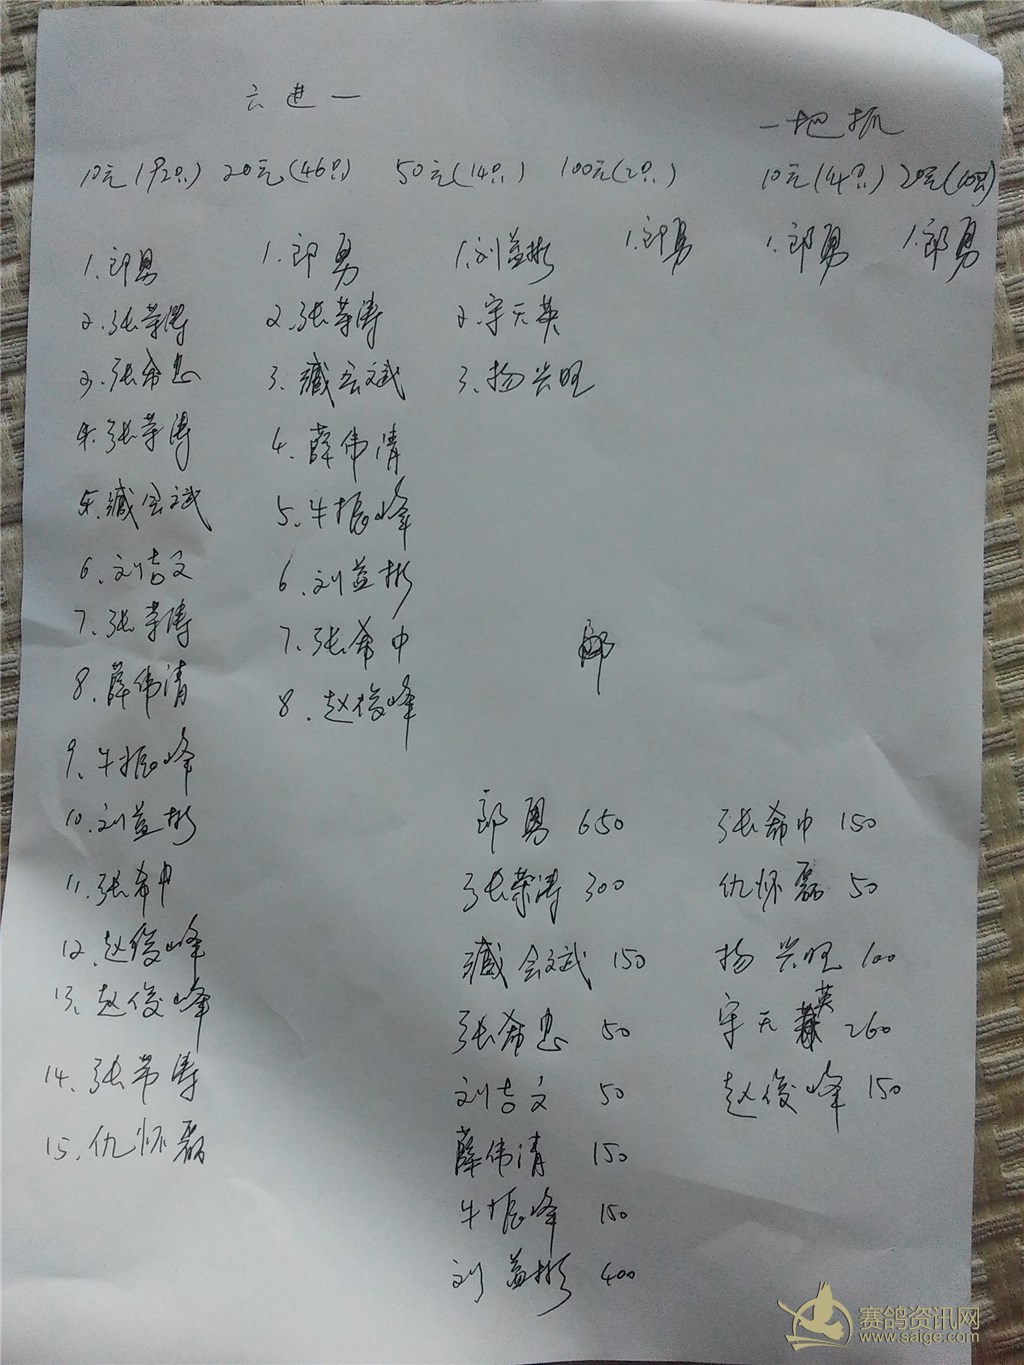 六进一
一把抓
10元(92只) 20元(46只) 50元(14只) 100元(2只) 10元(14只) 20元(10只)
1.郎勇 1.郎勇 1.刘益彬 1.郎勇 1.郎勇 1.郎勇
2.张荣涛 2.张荣涛 2.宇天英
3.张希忠 3.臧会斌 3.杨兴旺
4.张荣涛 4.薛伟清
5.臧会斌 5.牛振峰
6.刘吉文 6.刘益彬
7.张荣涛 7.张希中
8.薛伟清 8.赵俊峰
9.牛振峰
10.刘益彬
11.张希中
12.赵俊峰
13.赵俊峰
14.张荣涛
15.仇怀磊
郎勇 650 张希中 150
张荣涛 300 仇怀磊 50
臧会斌 150 杨兴旺 100
张希忠 50 宇天英 260
刘吉文 50 赵俊峰 150
薛伟清 150
牛振峰 150
刘益彬 400
赛鸽资讯网
www.saige.com